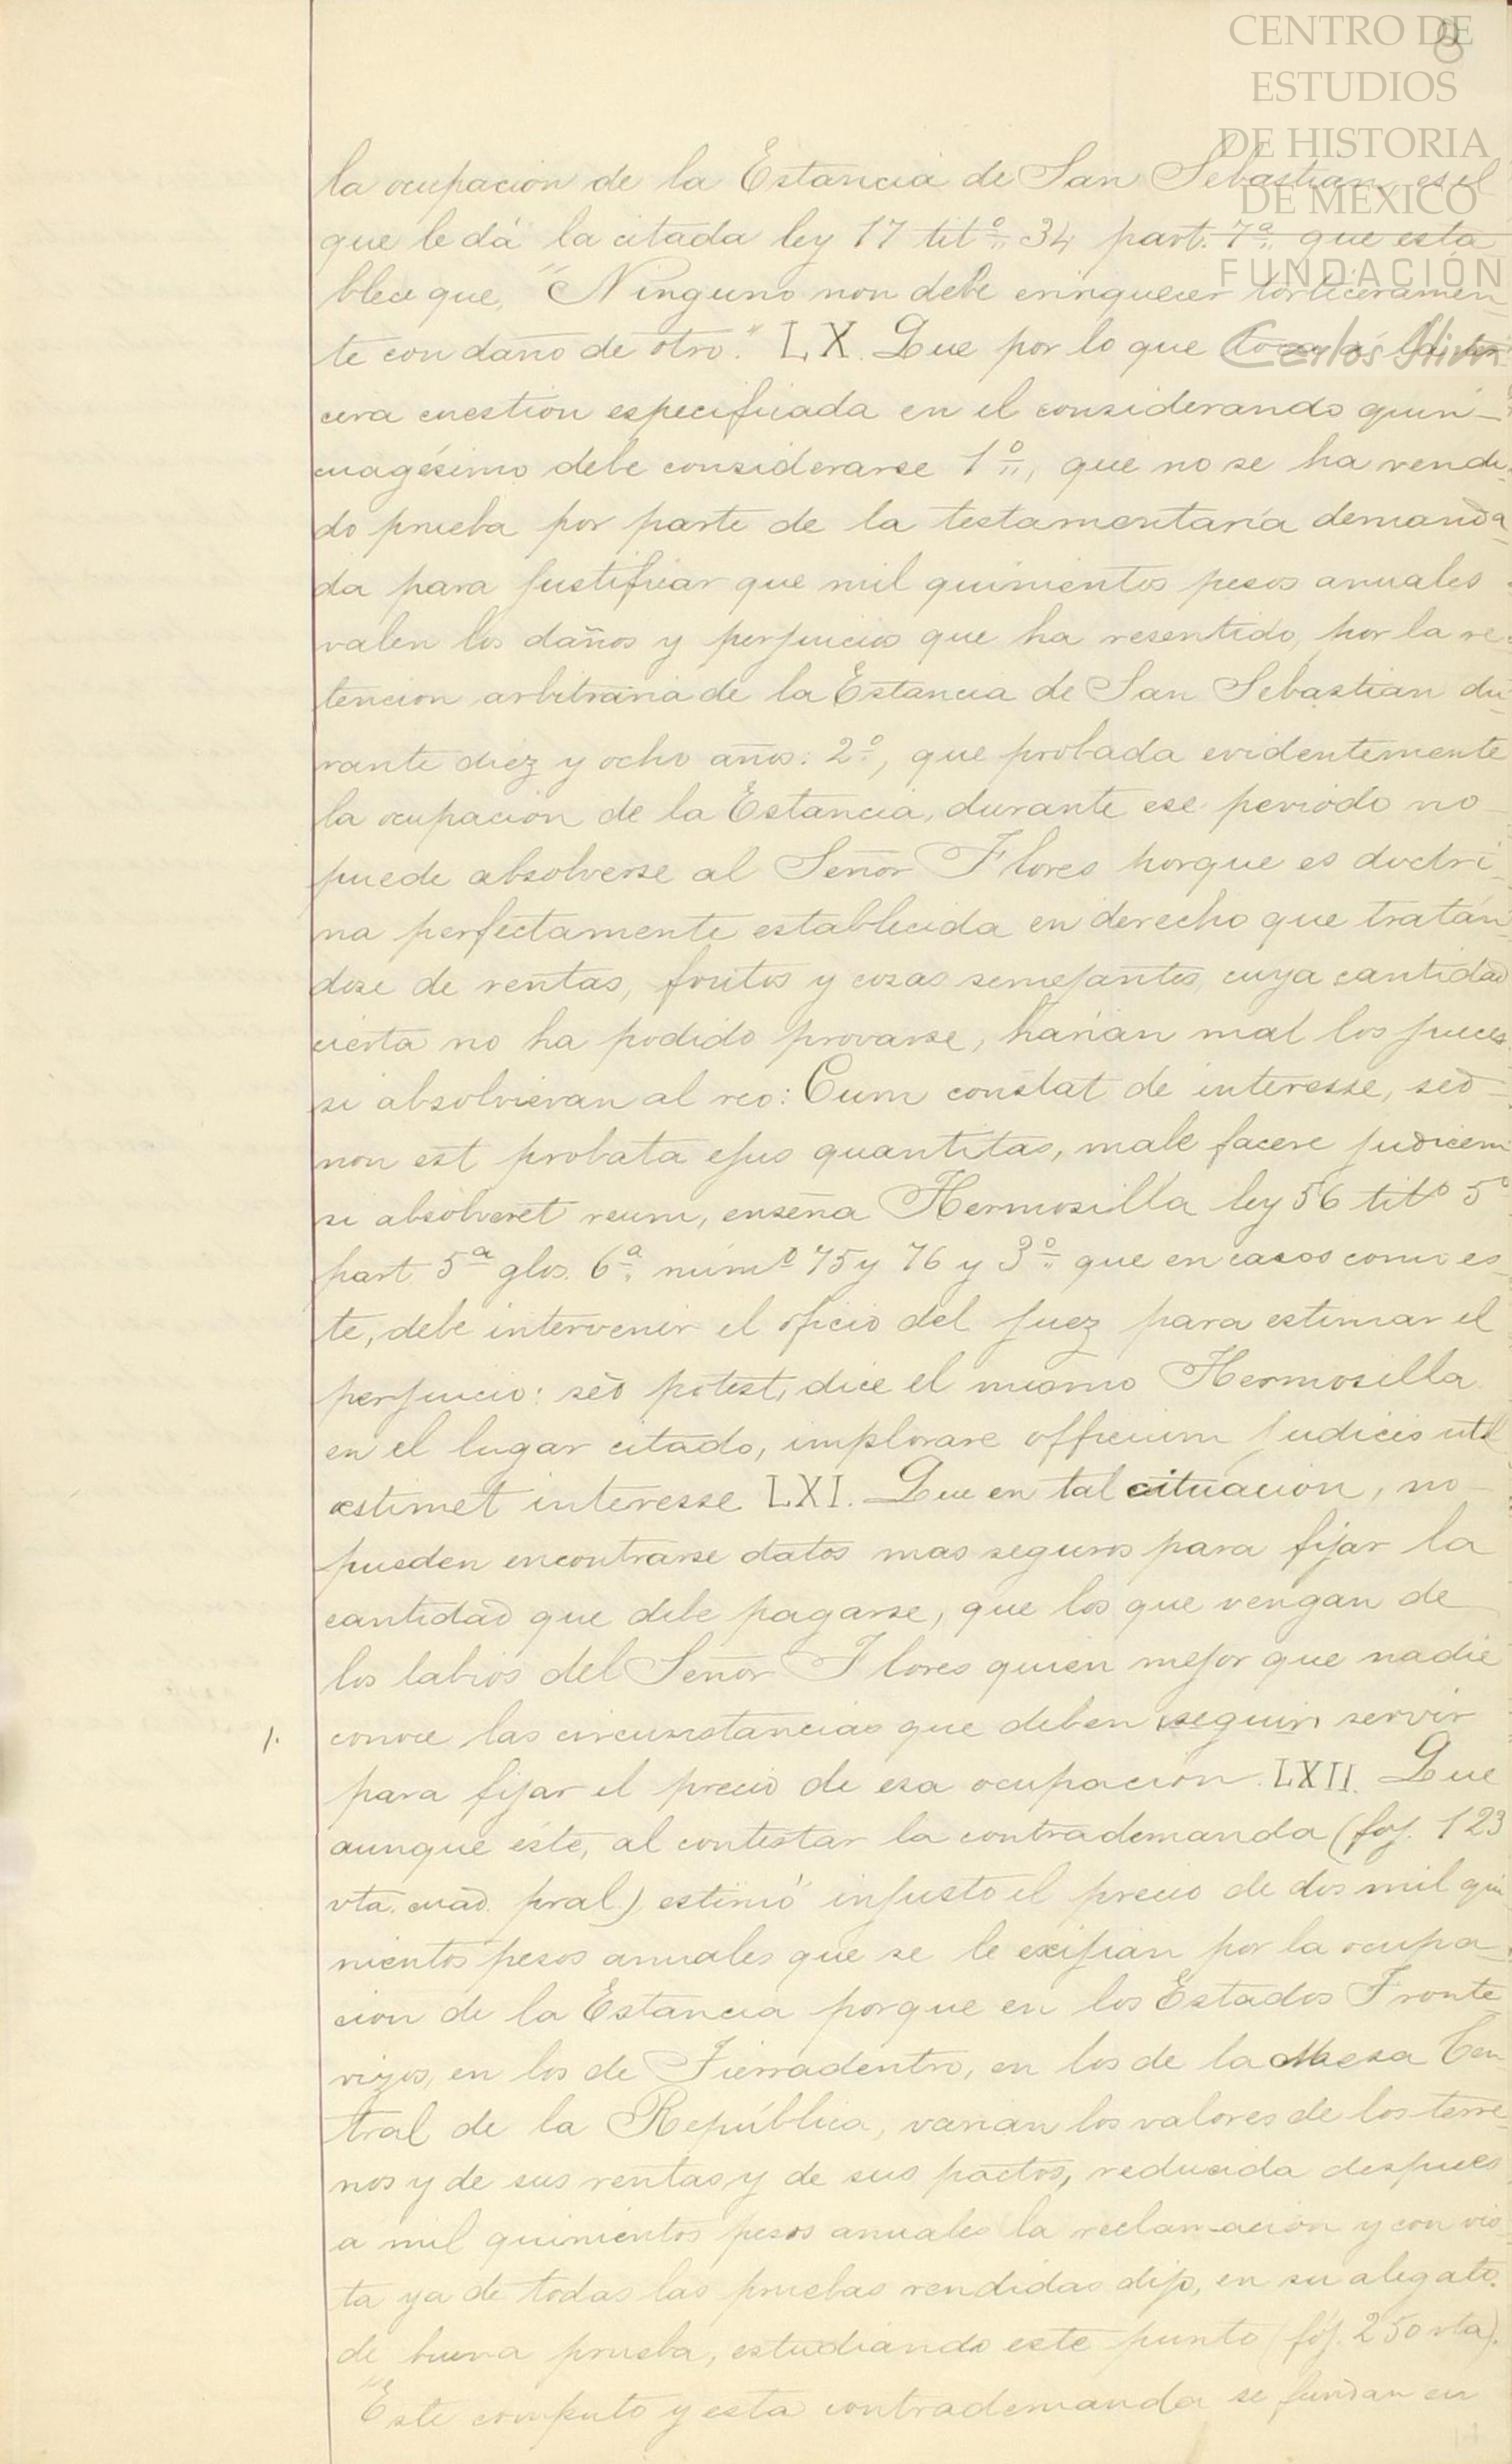 CENTRO DE
ESTUDIOS
DE HISTORIA
DE MEXICO
FUNDACIÓN
Carlos Slim
8
la ocupacion de la Estancia de San Sebastian, es el
que le dá la citada ley 17 titº 34 part. 7ª que esta
blece que, "Ninguno non debe enriquecer torticeramen
te con daño de otro." LX. Que por lo que toca á la ter
cera cuestion especificada en el considerando quin-
cuagésimo debe considerarse 1º, que no se ha rendi-
do prueba por parte de la testamentaría demanda
da para justificar que mil quinientos pesos anuales
valen los daños y perjuicios que ha resentido, por la re-
tencion arbitraria de la Estancia de San Sebastian du-
rante diez y ocho años: 2º, que probada evidentemente
la ocupacion de la Estancia, durante ese periodo no
puede absolverse al Señor Flores porque es doctri-
na perfectamente establecida en derecho que tratán
dose de rentas, frutos y cosas semejantes, cuya cantidad
cierta no ha podido provarse, harian mal los jueces
si absolvieran al reo: Cum constat de interesse, sed
non est probata ejus quantitas, male facere judicem
si absolveret reum, enseña Hermosilla ley 56 titº 5º
part. 5ª glos. 6ª númº 75 y 76 y 3º que en casos como es-
te, debe intervenir el oficio del juez para estimar el
perjuicio: sed potest, dice el mismo Hermosilla
en el lugar citado, implorare officium judicis ut
æstimet interesse LXI. Que en tal cituacion, no
pueden encontrarse datos mas seguros para fijar la
cantidad que debe pagarse, que los que vengan de
los labios del Señor Flores quien mejor que nadie
1. conoce las circunstancias que deben seguir servir
para fijar el precio de esa ocupacion. LXII. Que
aunque éste, al contestar la contrademanda (foj. 123
vta. cuad. pral.) estimó injusto el precio de dos mil qui
nientos pesos anuales que se le exijian por la ocupa-
cion de la Estancia porque en los Estados Fronte
rizos, en los de Tierradentro, en los de la Mesa Cen
tral de la República, varian los valores de los terre-
nos y de sus rentas y de sus pactos, reducida despues
a mil quinientos pesos anuales la reclamacion y con vis-
ta ya de todas las pruebas rendidas dijo, en su alegato
de buena prueba, estudiando este punto (foj. 250 vta).
"Este computo y esta contrademanda se fundan en